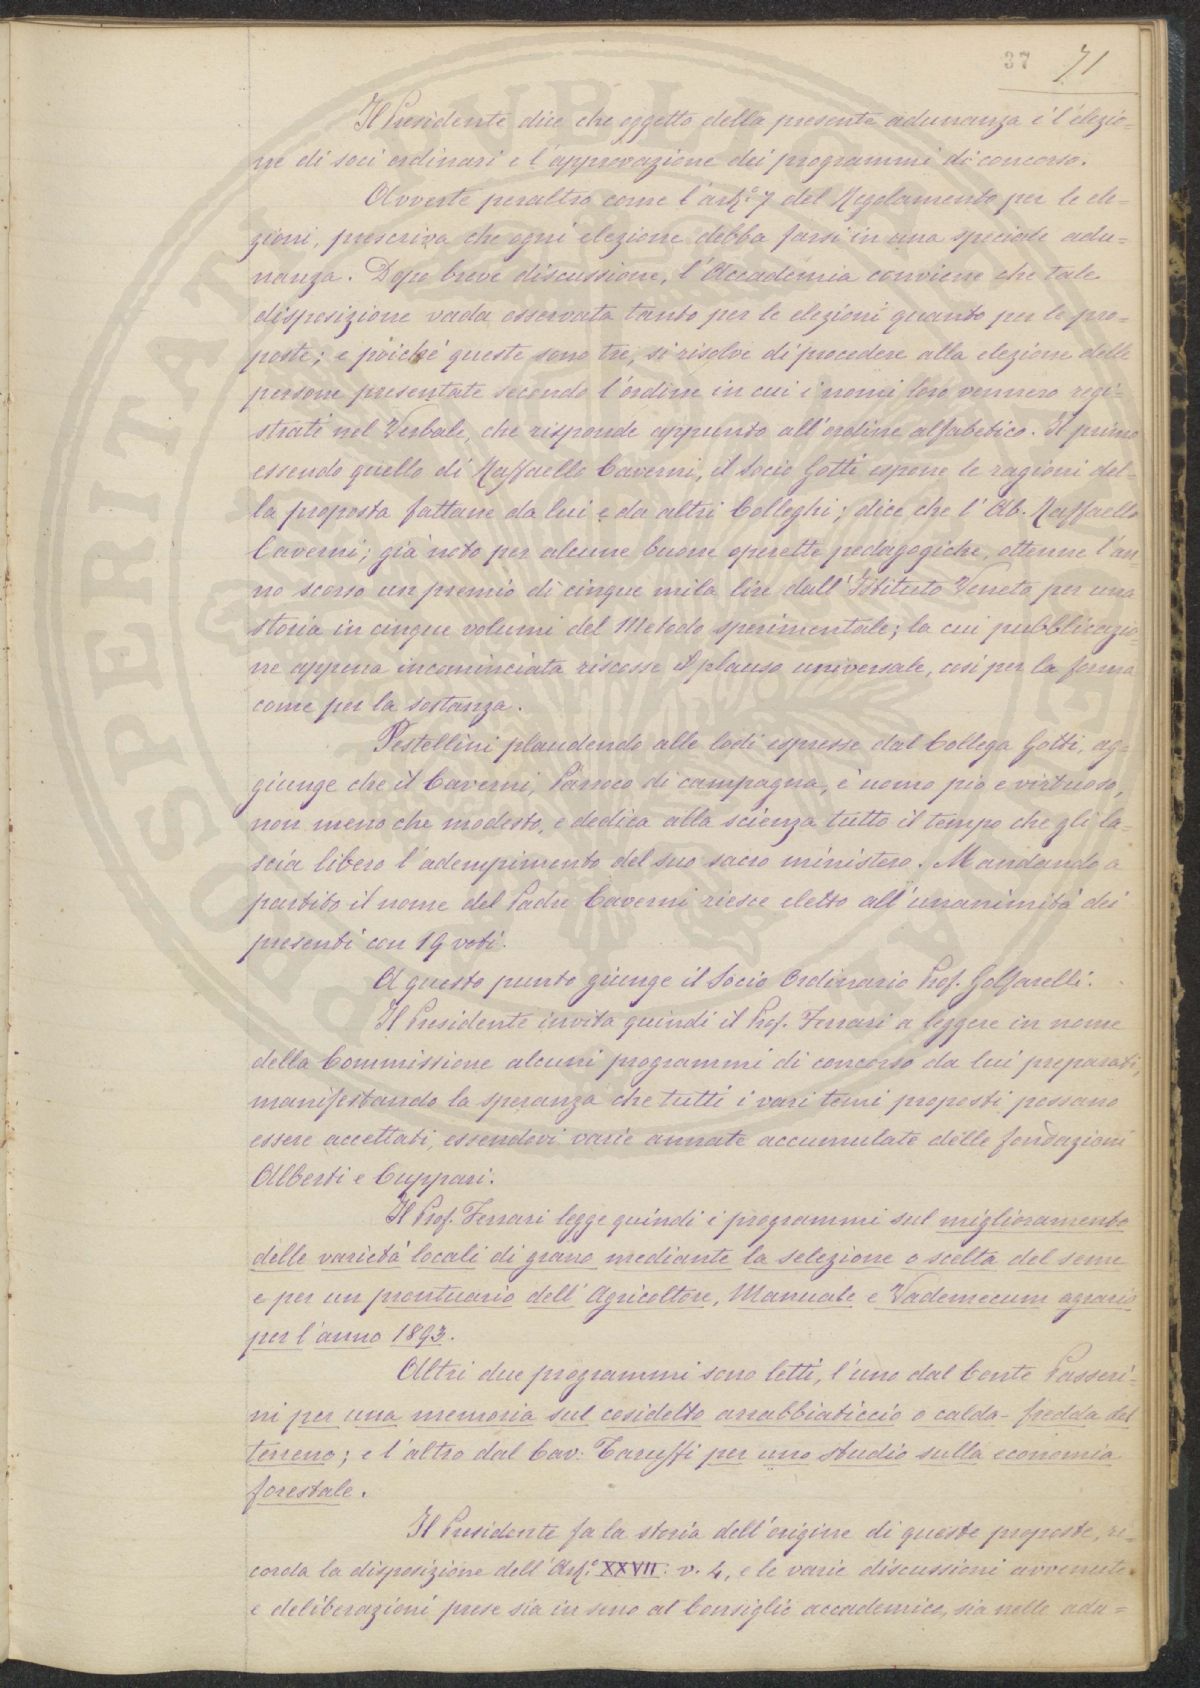 37 71
Il Presidente dice che oggetto della presente adunanza è l'elezio=
ne di soci ordinari e l'approvazione dei programmi di concorso.
Avverte peraltro come l'art.° 7 del Regolamento per le ele=
zioni, prescriva che ogni elezione debba farsi in una speciale adu=
nanza. Dopo breve discussione, l'Accademia conviene che tale
disposizione vada osservata tanto per le elezioni quanto per le pro=
poste; e poiché queste sono tre, si risolve di procedere alla elezione delle
persone presentate secondo l'ordine in cui i nomi loro vennero regi=
strati nel Verbale, che risponde appunto all'ordine alfabetico. Il primo
essendo quello di Raffaello Caverni, il Socio Gotti espone le ragioni del=
la proposta fattane da lui e da altri Colleghi; dice che l'Ab. Raffaello
Caverni; già noto per alcune buone operette pedagogiche, ottenne l'an=
no scorso un premio di cinque mila lire dall'Istituto Veneto per una
storia in cinque volumi del Metodo sperimentale; la cui pubblicazio=
ne appena incominciata riscosse il plauso universale, così per la forma
come per la sostanza.
Pestellini plaudendo alle lodi espresse dal Collega Gotti, ag=
giunge che il Caverni, Parroco di campagna, è uomo pio e virtuoso,
non meno che modesto, e dedica alla scienza tutto il tempo che gli la=
scia libero l'adempimento del suo sacro ministero. Mandando a
partito il nome del Padre Caverni riesce eletto all'unanimità dei
presenti con 19 voti.
A questo punto giunge il Socio Ordinario Prof. Golfarelli.
Il Presidente invita quindi il Prof. Ferrari a leggere in nome
della Commissione alcuni programmi di concorso da lui preparati,
manifestando la speranza che tutti i vari temi proposti possano
essere accettati, essendovi varie annate accumulate delle fondazioni
Alberti e Cuppari.
Il Prof. Ferrari legge quindi i programmi sul miglioramento
delle varietà locali di grano mediante la selezione o scelta del seme
e per un prontuario dell'Agricoltore, Manuale e Vademecum agrario
per l'anno 1893.
Altri due programmi sono letti, l'uno dal Conte Passeri=
ni per una memoria sul cosidetto arrabbiaticcio o calda-fredda del
terreno; e l'altro dal Cav. Taruffi per uno studio sulla economia
forestale.
Il Presidente fa la storia dell'origine di queste proposte, ri=
corda la disposizione dell'Art.° XXVII. v. 4, e le varie discussioni avvenute
e deliberazioni prese sia in seno al Consiglio accademico, sia nelle adu=
PROSPERITATI PUBLICAE AUGENDAE